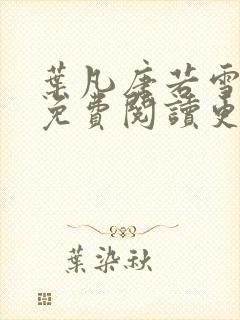 葉凡唐若雪
免費閱讀更
葉染秋